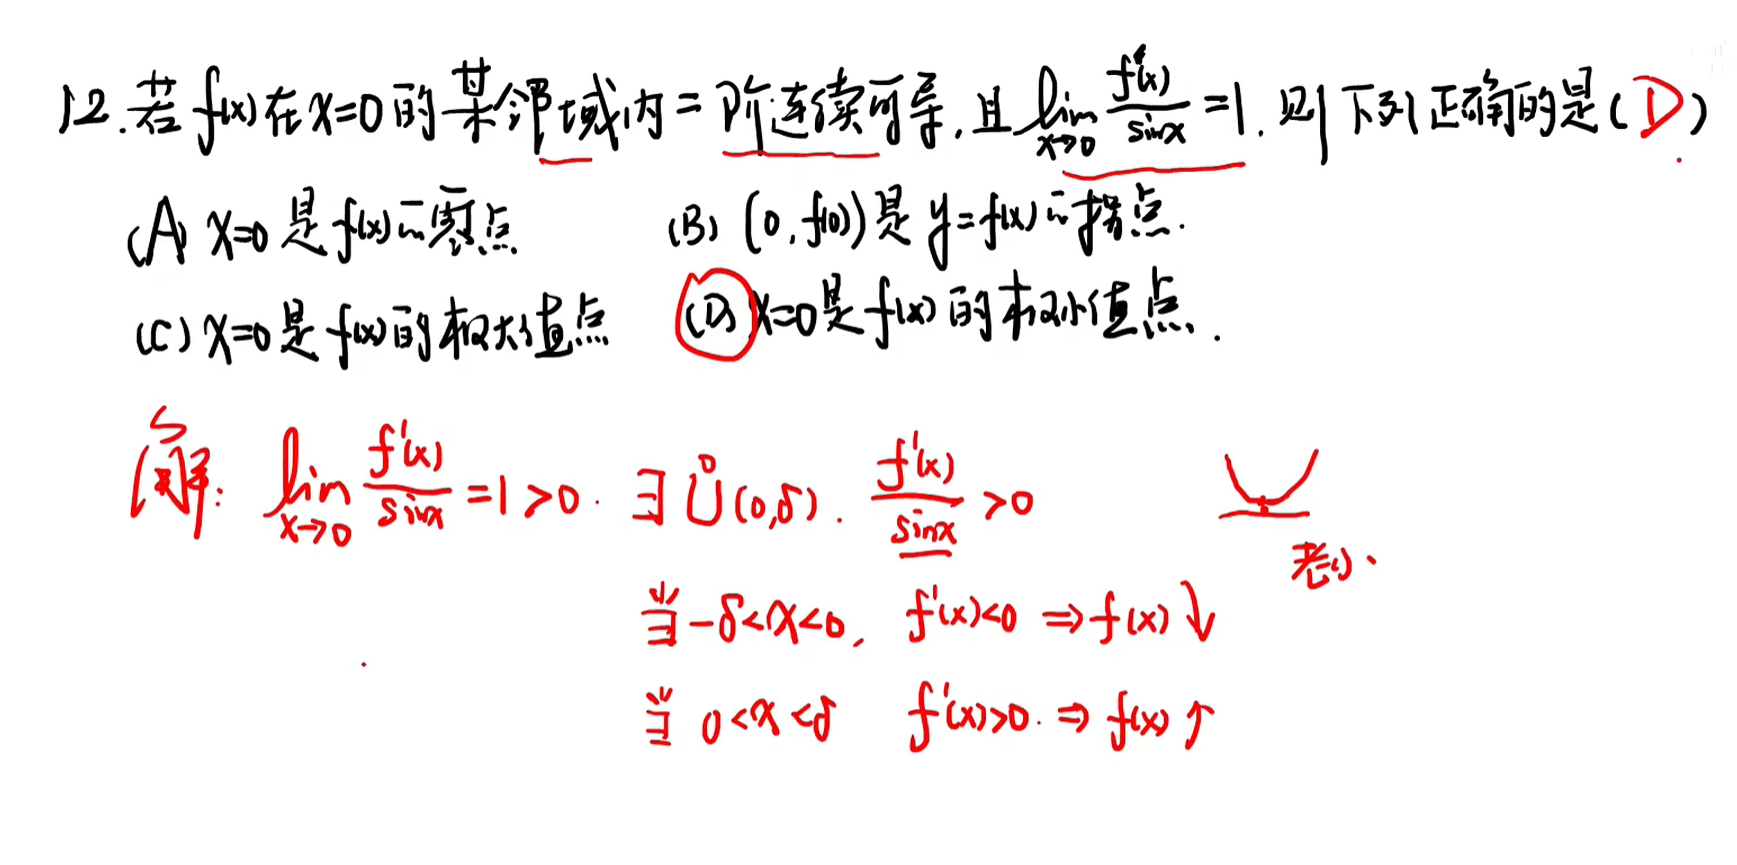 12.若f(x)在x=0的某邻域内二阶连续可导,且lim x→0 f'(x)/sinx=1.则下列正确的是(D)
(A) x=0是f(x)的零点 (B) (0,f(0))是y=f(x)的拐点.
(C) x=0是f(x)的极大值点 (D) x=0是f(x)的极小值点.
解: lim x→0 f'(x)/sinx=1>0. ∃ Ů(0,δ). f'(x)/sinx>0
当-δ<x<0, f'(x)<0 ⇒f(x)↓
当 0<x<δ f'(x)>0. ⇒ f(x)↑